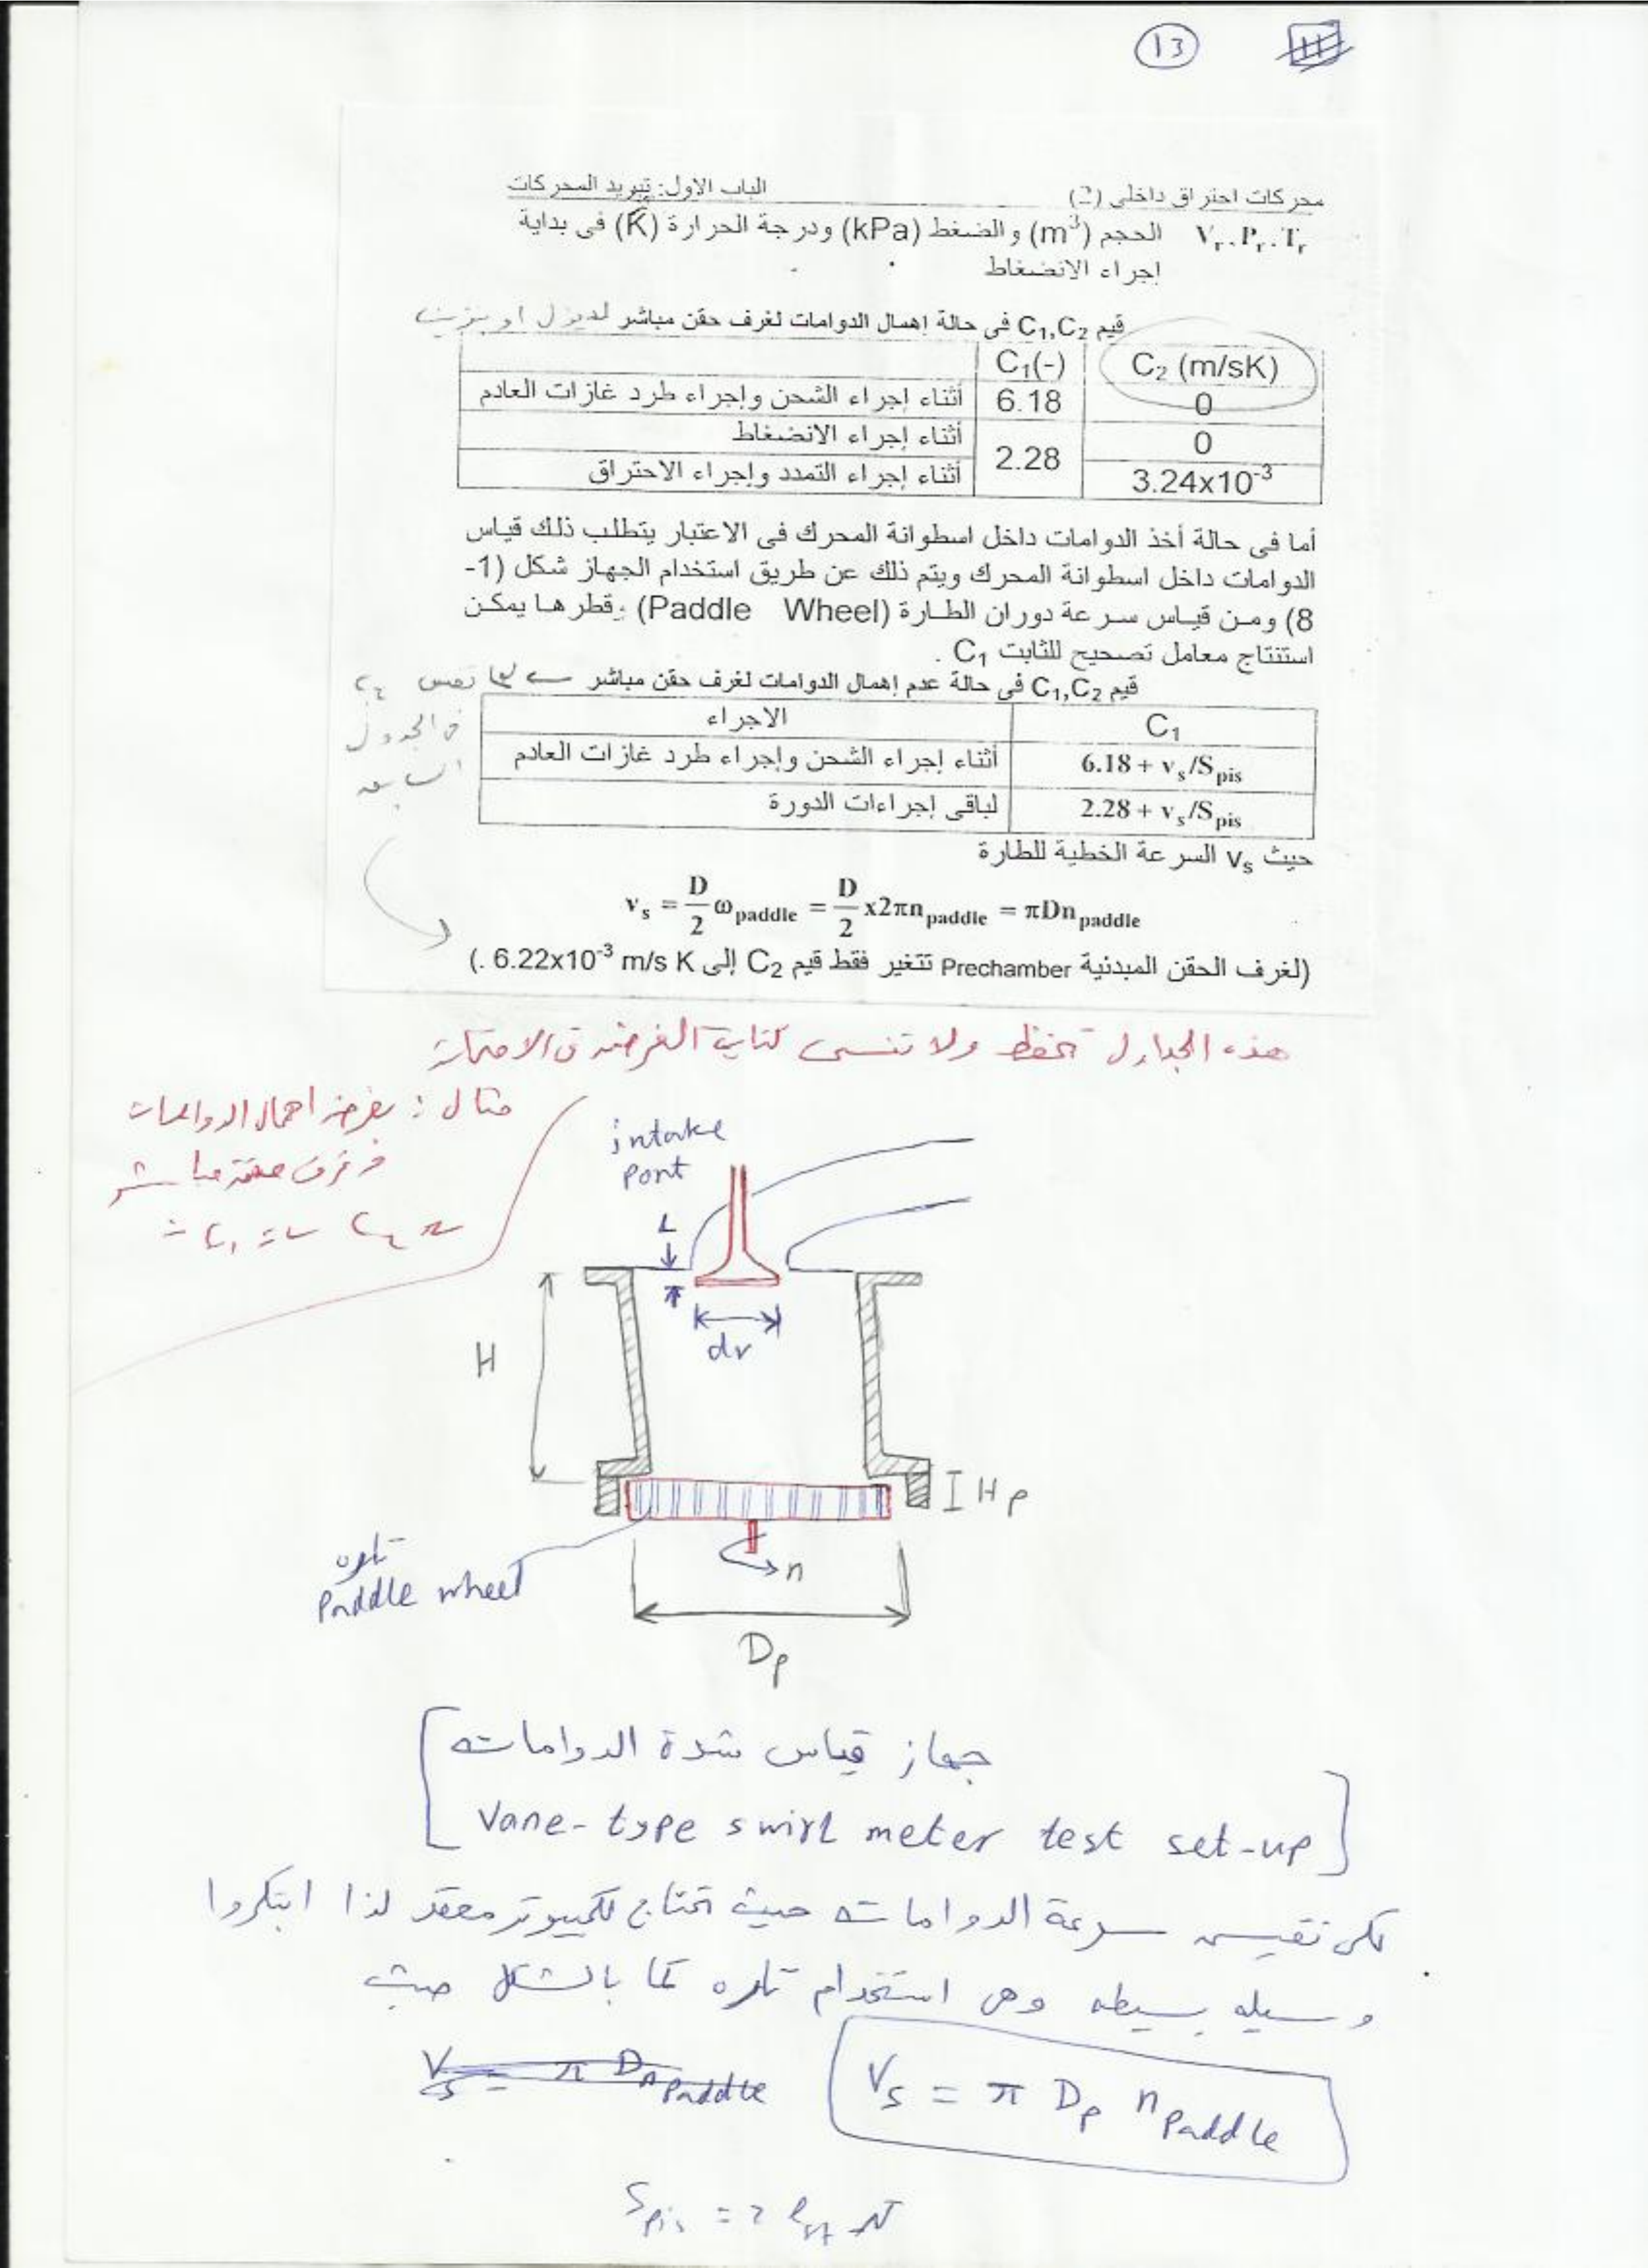 13
محركات احتراق داخلى (2) الباب الاول: تبريد المحركات
Vr, Pr, Tr الحجم (m³) والضغط (kPa) ودرجة الحرارة (K) فى بداية
إجراء الانضغاط
قيم C₁,C₂ فى حالة إهمال الدوامات لغرف حقن مباشر لديزل او بنزين
C₁(-) C₂ (m/sK)
أثناء إجراء الشحن وإجراء طرد غازات العادم 6.18 0
أثناء إجراء الانضغاط 2.28 0
أثناء إجراء التمدد وإجراء الاحتراق 3.24x10⁻³
أما فى حالة أخذ الدوامات داخل اسطوانة المحرك فى الاعتبار يتطلب ذلك قياس
الدوامات داخل اسطوانة المحرك ويتم ذلك عن طريق استخدام الجهاز شكل (1-
8) ومن قياس سرعة دوران الطارة (Paddle Wheel) وقطرها يمكن
استنتاج معامل تصحيح للثابت C₁ .
قيم C₁,C₂ فى حالة عدم إهمال الدوامات لغرف حقن مباشر ← لها نفس C₂
فى الجدول
السابق
الاجراء C₁
أثناء إجراء الشحن وإجراء طرد غازات العادم 6.18 + vs/Spis
لباقى إجراءات الدورة 2.28 + vs/Spis
حيث vs السرعة الخطية للطارة
vs = D/2 ωpaddle = D/2 x2πnpaddle = πDnpaddle
(لغرف الحقن المبدئية Prechamber تتغير فقط قيم C₂ إلى 6.22x10⁻³ m/s K .)
هذه الجداول تحفظ ولا تنسى كتابة الفرض فى الامتحان
مثال : بفرض اهمال الدوامات
وغرف حقن مباشر
intake
port
L
dv
H
Hp
n
تاره
Paddle wheel
Dp
جهاز قياس شدة الدوامات
Vane-type swirl meter test set-up
لكى نقيس سرعة الدوامات حيث تحتاج لكمبيوتر معقد لذا ابتكروا
وسيله بسيطه وهى استخدام تاره كما بالشكل حيث
Vs = π Dn Paddle
Vs = π Dp n Paddle
Spis = 2 lst N